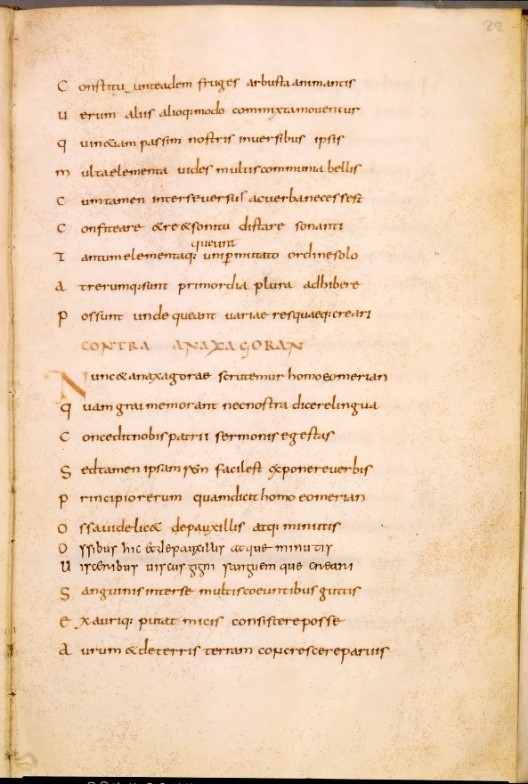 22
C onstitu unteadem fruges arbusta animantis
U erum aliis alioq;modo commixtamoventur
q uin&iam passim nostris inversibus ipsis
m ultaelementa vides multiscommunia bellis
C umtamen interseversus acverbanecessest
C onfiteare &re&sonitu distare sonanti
queunt
T antumelementaq; permutato ordinesolo
A trerumq;sunt primordia plura adhibere
P ossunt unde queant variae resquaeq;creari
CONTRA ANAXAGORAN
N unc&anaxagorae scrutemur homoeomerian
q uamgraimemorant necnostra dicerelingua
C onceditnobispatrii sermonis egestas
S edtamen ipsam rem facilest exponereverbis
P rincipiorerum quamdicit homo eomerian
O ssavidelic& depauxillis atq; minutis
O ssibus hic et depauxillis atque minutis
U isceribus viscus gigni sanguem que creari
S anguinisinterse multiscoeuntibus guttis
E xauriq; putat micis consistereposse
A urum &deterris terram concrescereparvis